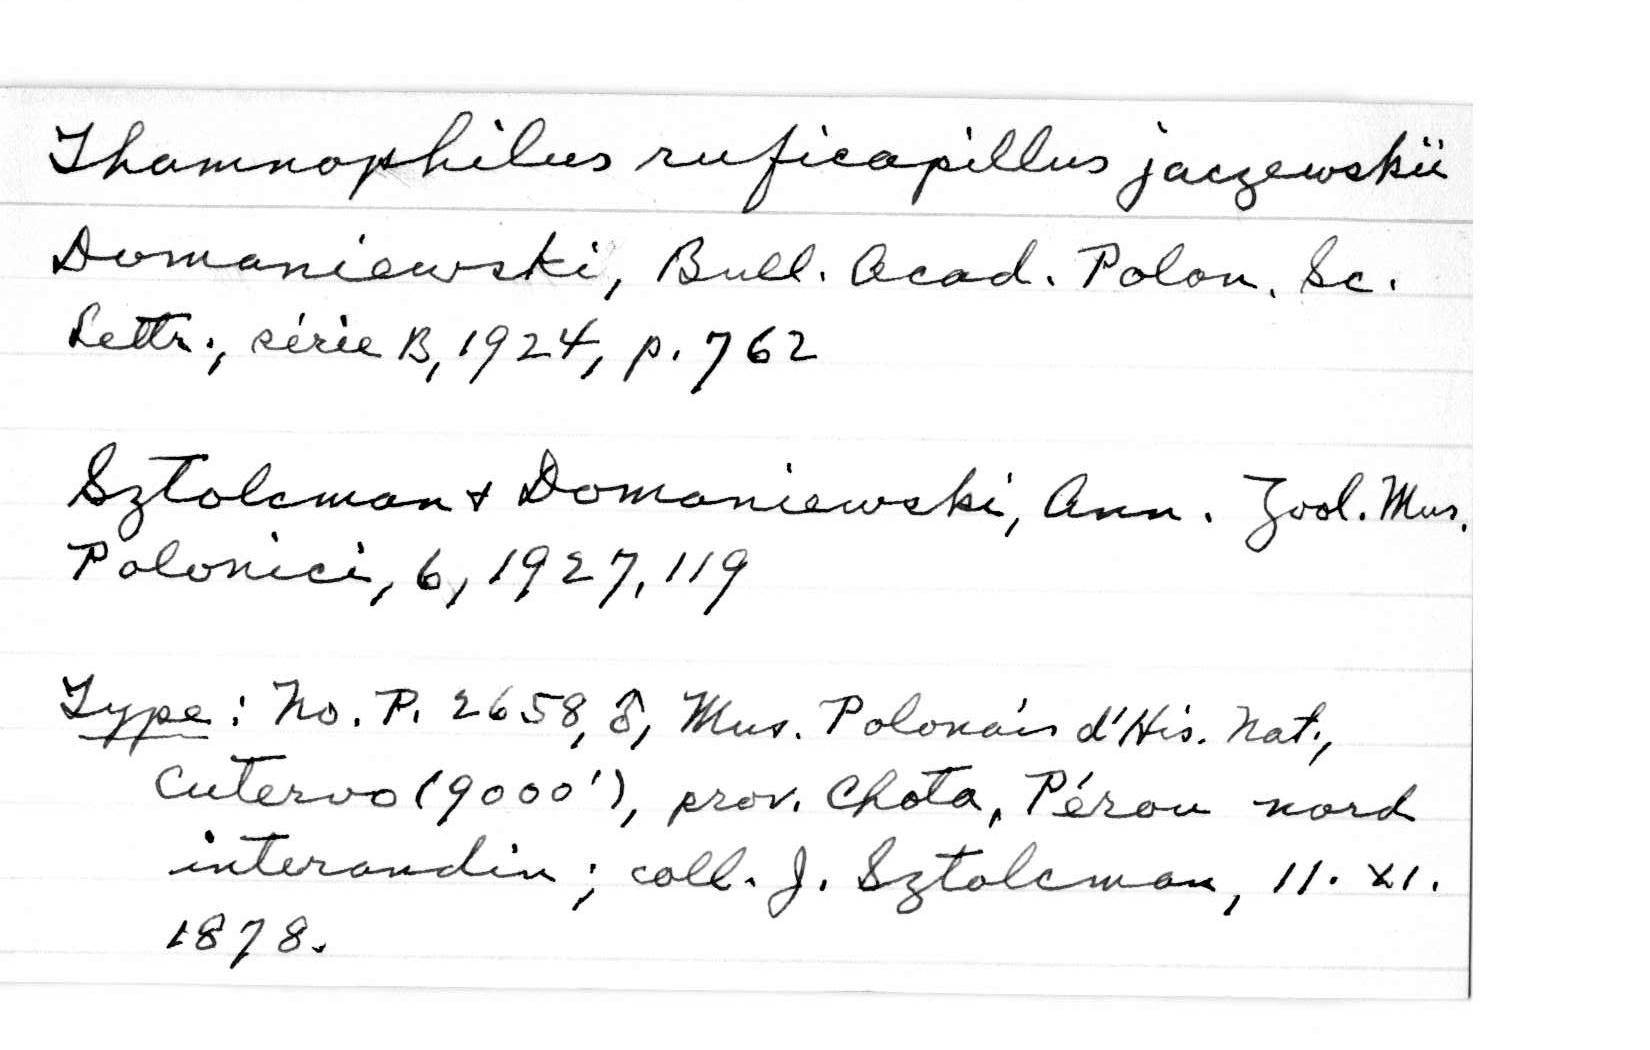 Thamnophilus ruficapillus jaczewskii
Domaniewski, Bull. Acad. Polon. Sc.
Lettr., série B, 1924, p. 762
Sztolcman & Domaniewski, Ann. Zool. Mus.
Polonici, 6, 1927, 119
Type: No. P. 2658, ♂, Mus. Polonais d'His. Nat.,
Cutervo (9000'), prov. Chota, Pérou nord
interandin; coll. J. Sztolcman, 11. XI.
1878.